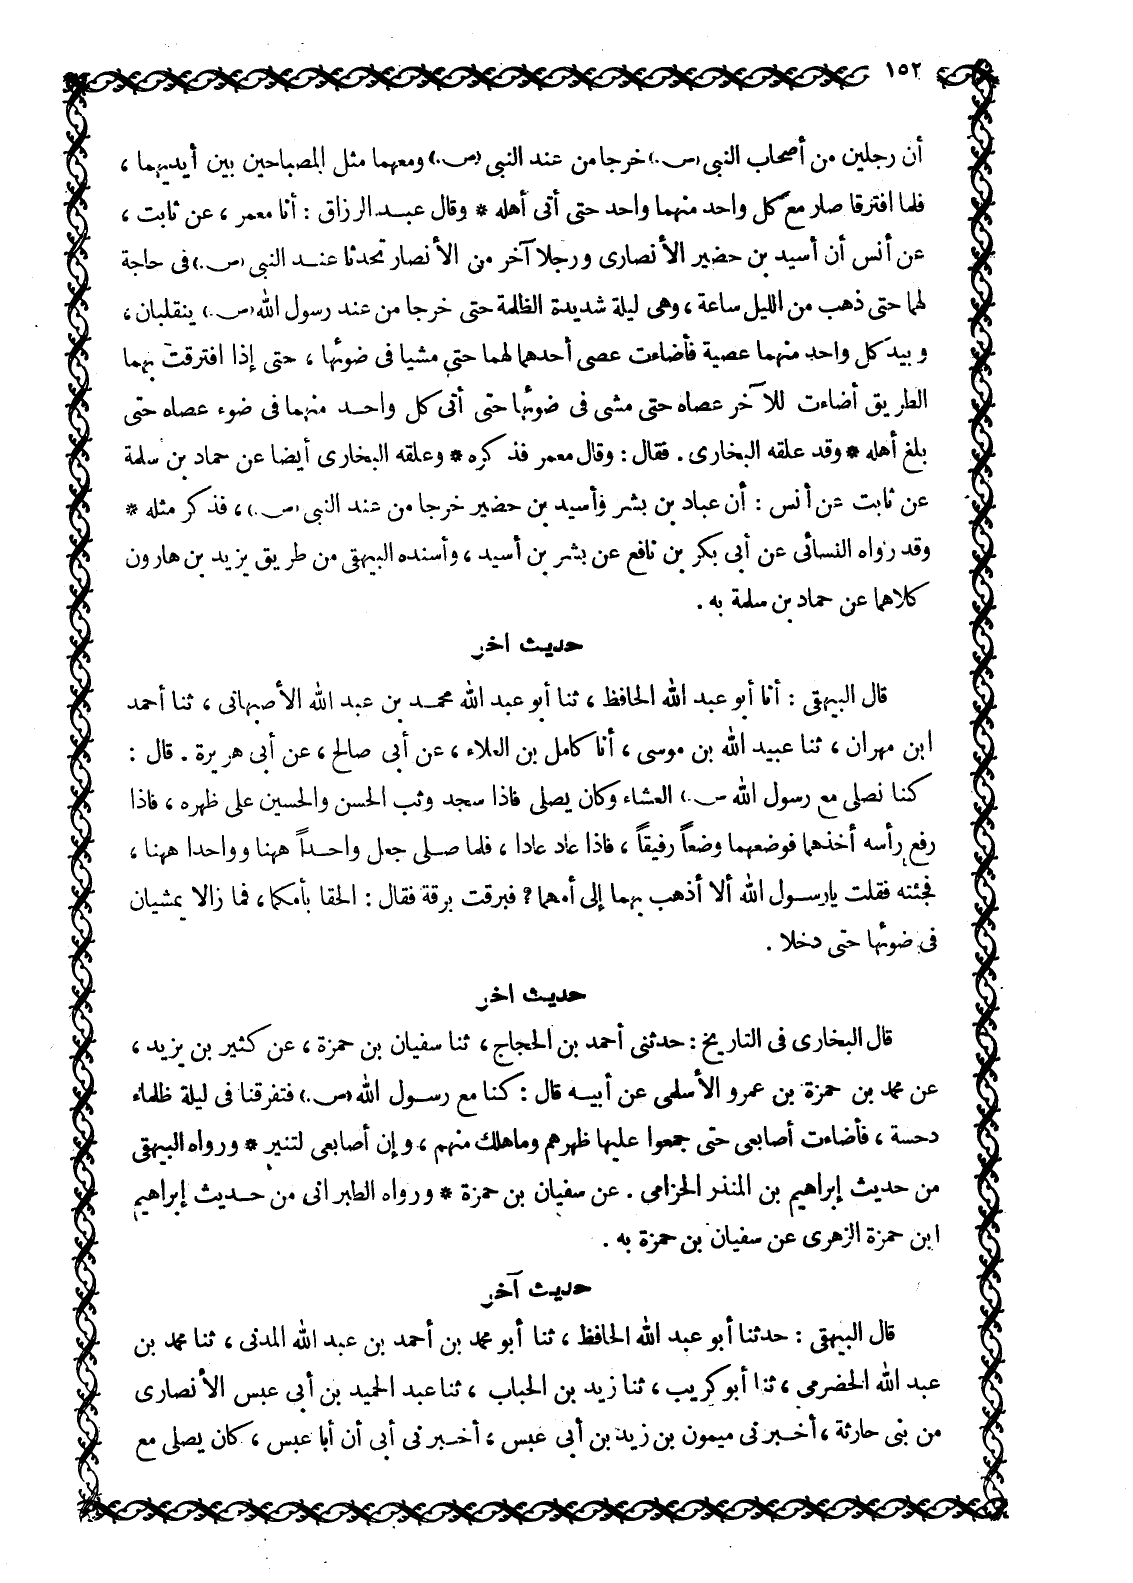 ١٥٢
أن رجلين من أصحاب النبى (ص.) خرجا من عند النبى (ص.) ومعهما مثل المصباحين بين أيديهما ،
فلما افترقا صار مع كل واحد منهما واحد حتى أتى أهله * وقال عبد الرزاق : أنا معمر ، عن ثابت ،
عن أنس أن أسيد بن حضير الأنصارى ورجلا آخر من الأنصار تحدثا عند النبى (ص.) فى حاجة
لهما حتى ذهب من الليل ساعة ، وهى ليلة شديدة الظلمة حتى خرجا من عند رسول الله (ص.) ينقلبان ،
وبيد كل واحد منهما عصية فأضاءت عصى أحدهما لهما حتى مشيا فى ضوئها ، حتى إذا افترقت بهما
الطريق أضاءت للآخر عصاه حتى مشى فى ضوئها حتى أتى كل واحد منهما فى ضوء عصاه حتى
بلغ أهله * وقد علقه البخارى . فقال : وقال معمر فذكره * وعلقه البخارى أيضا عن حماد بن سلمة
عن ثابت عن أنس : أن عباد بن بشر وأسيد بن حضير خرجا من عند النبى (ص.) ، فذكر مثله *
وقد رواه النسائى عن أبى بكر بن نافع عن بشر بن أسيد ، وأسنده البيهقى من طريق يزيد بن هارون
كلاهما عن حماد بن سلمة به .
حديث اخر
قال البيهقى : أنا أبو عبد الله الحافظ ، ثنا أبو عبد الله محمد بن عبد الله الأصبهانى ، ثنا أحمد
ابن مهران ، ثنا عبيد الله بن موسى ، أنا كامل بن العلاء ، عن أبى صالح ، عن أبى هريرة . قال :
كنا نصلى مع رسول الله ص.) العشاء وكان يصلى فاذا سجد وثب الحسن والحسين على ظهره ، فاذا
رفع رأسه أخذهما فوضعهما وضعاً رفيقاً ، فاذا عاد عادا ، فلما صلى جعل واحداً ههنا وواحدا ههنا ،
فجئته فقلت يارسول الله ألا أذهب بهما إلى أمهما ؟ فبرقت برقة فقال : الحقا بأمكما ، فما زالا يمشيان
فى ضوئها حتى دخلا .
حديث اخر
قال البخارى فى التاريخ : حدثنى أحمد بن الحجاج ، ثنا سفيان بن حمزة ، عن كثير بن يزيد ،
عن محمد بن حمزة بن عمرو الأسلمى عن أبيه قال : كنا مع رسول الله (ص.) فتفرقنا فى ليلة ظلماء
دحسة ، فأضاءت أصابعى حتى جمعوا عليها ظهرهم وماهلك منهم ، وإن أصابعى لتنير * ورواه البيهقى
من حديث إبراهيم بن المنذر الحزامى . عن سفيان بن حمزة * ورواه الطبرانى من حديث إبراهيم
ابن حمزة الزهرى عن سفيان بن حمزة به .
حديث آخر
قال البيهقى : حدثنا أبو عبد الله الحافظ ، ثنا أبو محمد بن أحمد بن عبد الله المدنى ، ثنا محمد بن
عبد الله الحضرمى ، ثنا أبو كريب ، ثنا زيد بن الحباب ، ثنا عبد الحميد بن أبى عبس الأنصارى
من بنى حارثة ، أخبرنى ميمون بن زيد بن أبى عبس ، أخبرنى أبى أن أبا عبس ، كان يصلى مع